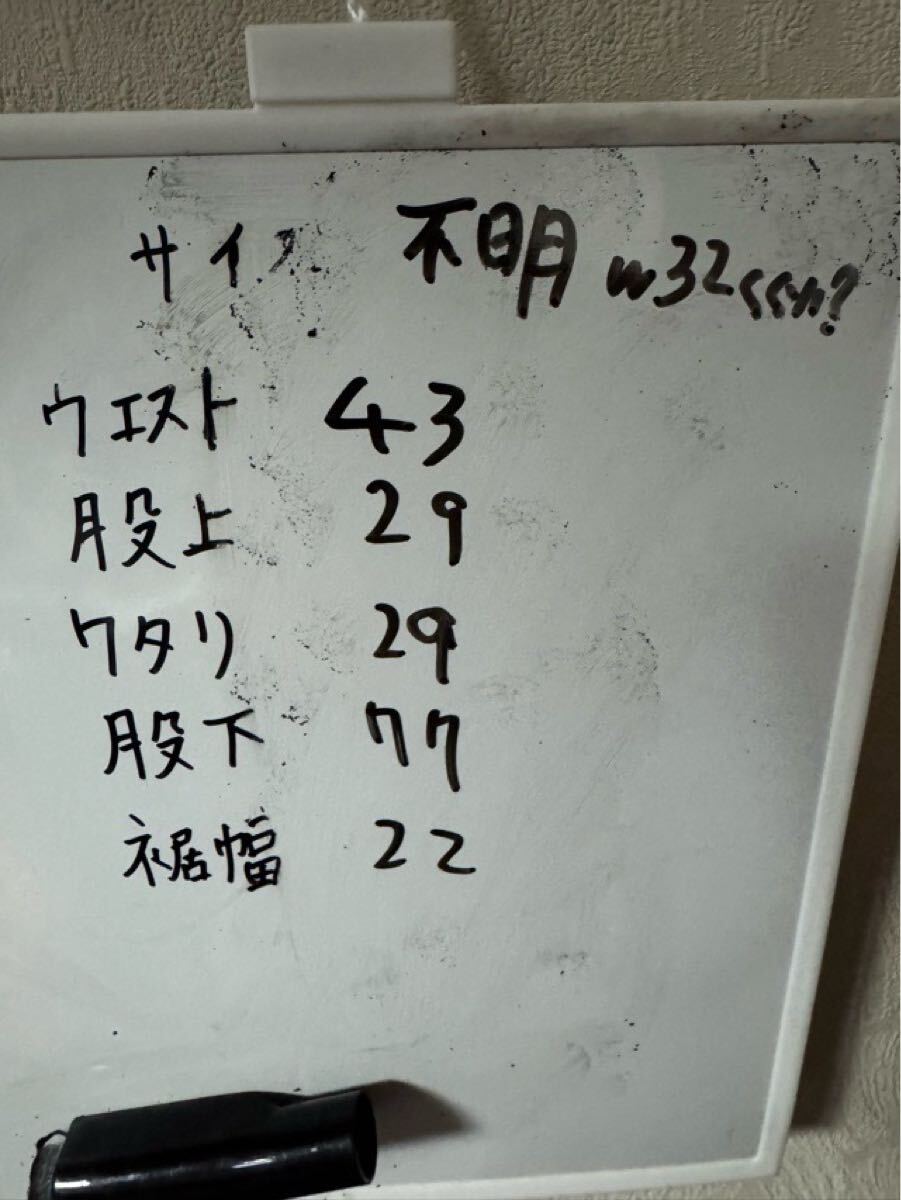 サイズ 不明 w32くらい?
ウエスト 43
股上 29
ワタリ 29
股下 77
裾幅 22